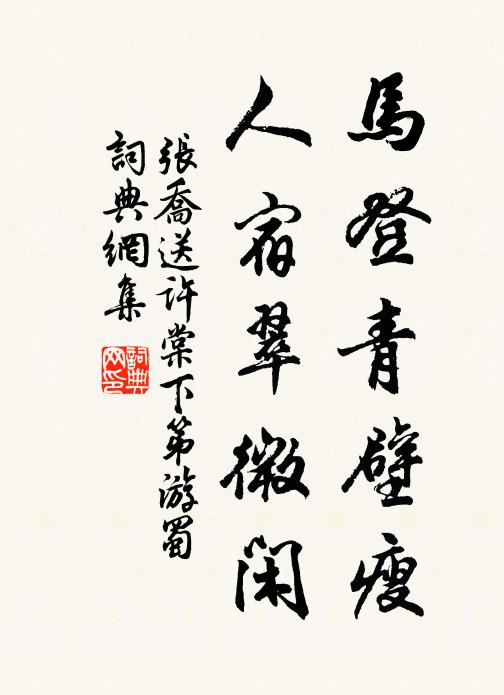 馬登青壁瘦
人宿翠微閑
張喬送許棠下第游蜀
詞典網集
詞典網印